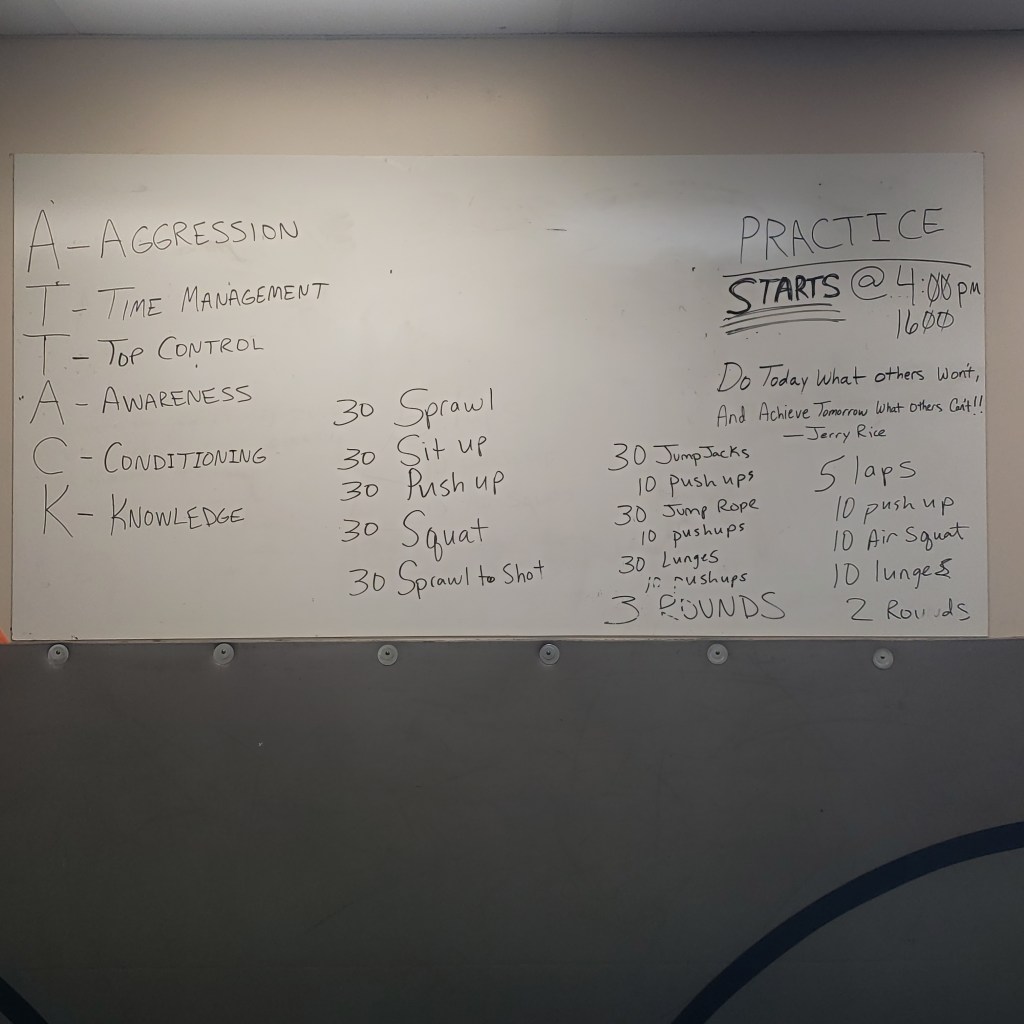 A - AGGRESSION
T - TIME MANAGEMENT
T - TOP CONTROL
A - AWARENESS
C - CONDITIONING
K - KNOWLEDGE
30 Sprawl
30 Sit up
30 Push up
30 Squat
30 Sprawl to Shot
PRACTICE
STARTS @ 4:00 pm
1600
Do Today What others Won't,
And Achieve Tomorrow What Others Can't!!
— Jerry Rice
30 Jump Jacks
10 push ups
30 Jump Rope
10 pushups
30 Lunges
10 pushups
3 ROUNDS
5 laps
10 push up
10 Air Squat
10 lunges
2 Rounds